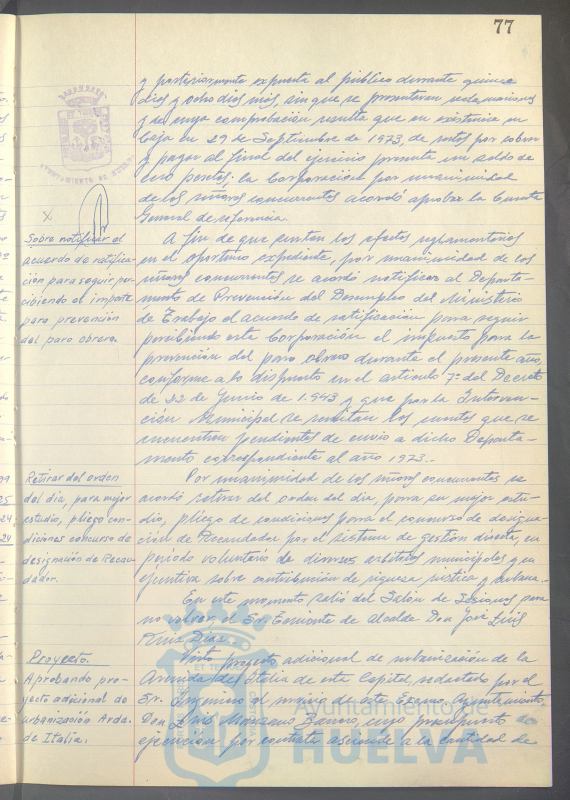 77
y posteriormente expuesta al público durante quince
días y ocho días más, sin que se presentaran reclamaciones
y de cuya comprobación resulta que en existencia en
Caja en 29 de Septiembre de 1973, de restos por cobrar
y pagar al final del ejercicio presenta un saldo de
cero pesetas; la Corporación por unanimidad
de los señores concurrentes acordó aprobar la Cuenta
General de referencia.
Sobre notificar el
acuerdo de ratifica-
ción para seguir per-
cibiendo el importe
para prevención
del paro obrero.
A fin de que surtan los efectos reglamentarios
en el oportuno expediente, por unanimidad de los
señores concurrentes se acordó notificar al Departa-
mento de Prevención del Desempleo del Ministerio
de Trabajo el acuerdo de ratificación para seguir
percibiendo esta Corporación el impuesto para la
prevención del paro obrero durante el presente año,
conforme a lo dispuesto en el artículo 7º del Decreto
de 22 de Junio de 1.943 y que por la Interven-
ción Municipal se remitan las cuentas que se
encuentran pendientes de envío a dicho Departa-
mento correspondiente al año 1973.-
Retirar del orden
del día, para mejor
estudio, pliego con-
diciones concurso de
designación de Recau-
dador.
Por unanimidad de los señores concurrentes se
acordó retirar del orden del día, para su mejor estu-
dio, pliego de condiciones para el concurso de designa-
ción de Recaudador por el sistema de gestión directa, en
período voluntario de diversos arbitrios municipales y en
ejecutiva sobre contribución de riqueza rústica y urbana.-
En este momento salió del Salón de Sesiones para
no volver, el Sr. Teniente de Alcalde Don José Luis
Ruiz Díaz.
Proyecto.
Aprobando pro-
yecto adicional de
urbanización Avda.
de Italia.
Visto proyecto adicional de urbanización de la
Avenida de Italia de esta Capital, redactado por el
Sr. Ingeniero al servicio de este Excmo. Ayuntamiento,
Don Luis Manzano, cuyo presupuesto de
ejecución por contrata asciende a la cantidad de
Ayuntamiento de
HUELVA